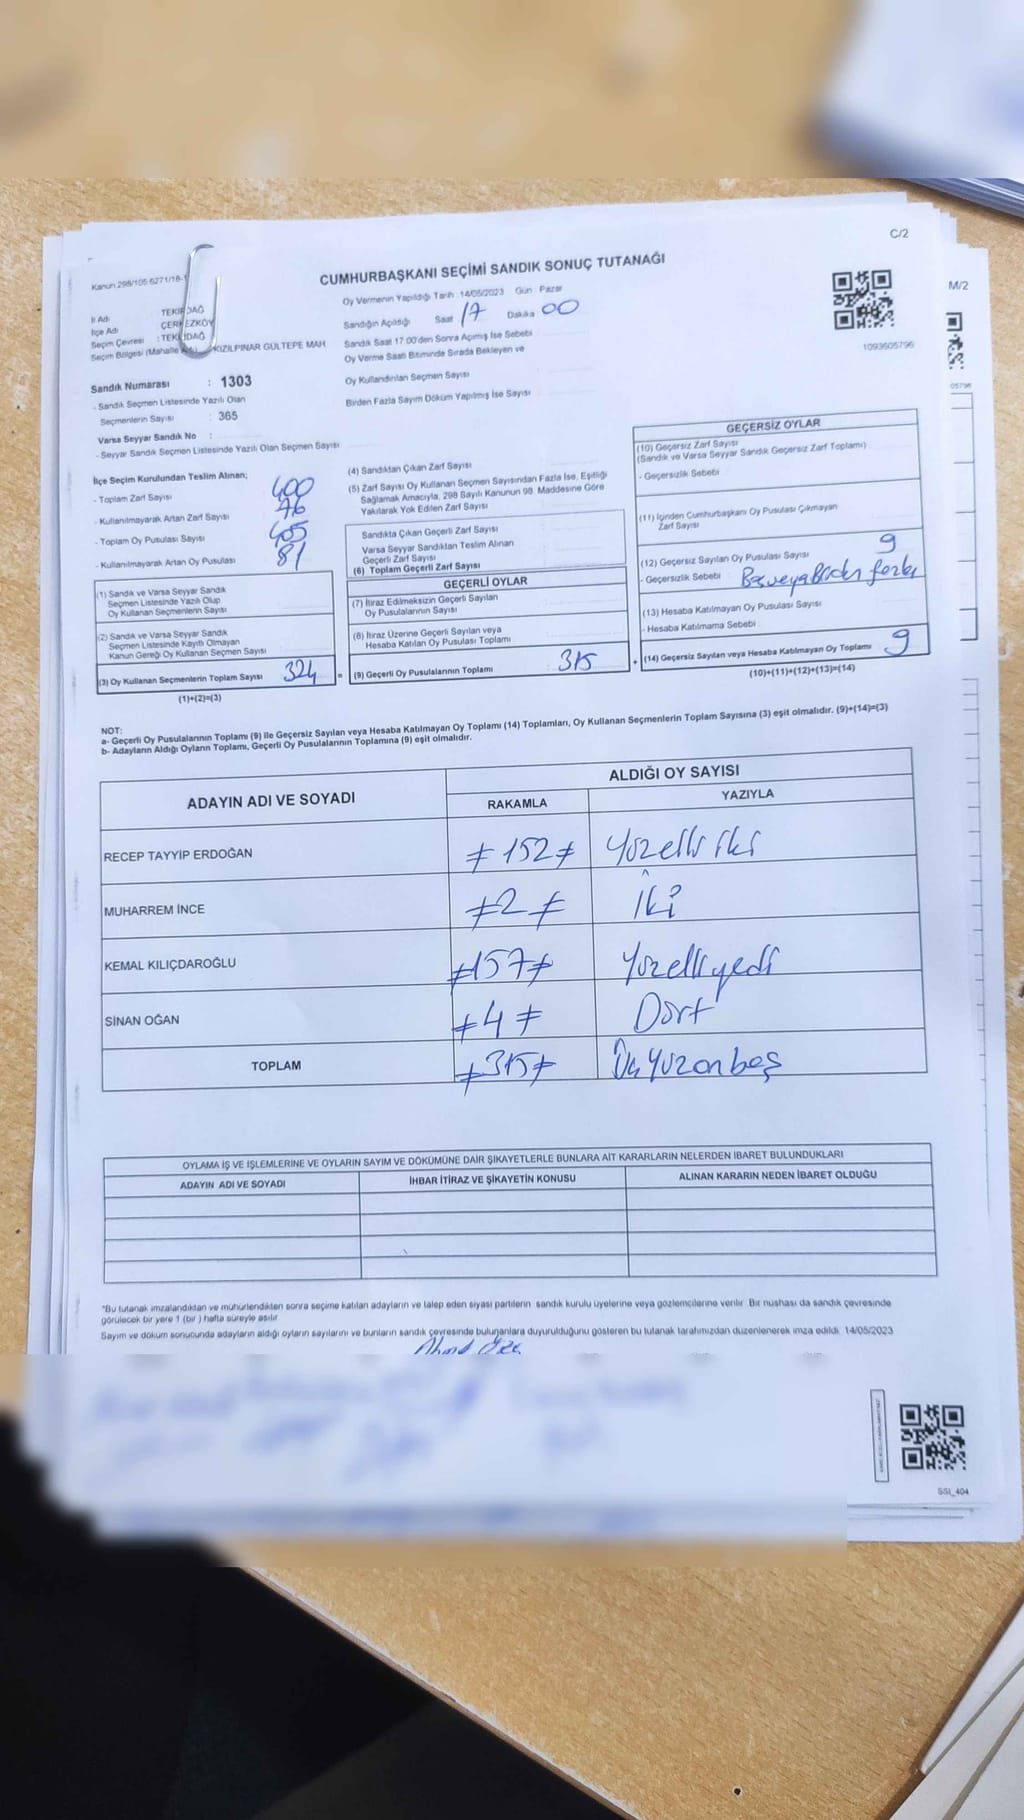 C/2
M/2
Kanun 298/105 6271/18-1
CUMHURBAŞKANI SEÇİMİ SANDIK SONUÇ TUTANAĞI
Oy Vermenin Yapıldığı Tarih :14/05/2023 Gün : Pazar
İl Adı TEKİRDAĞ
İlçe Adı ÇERKEZKÖY
Seçim Çevresi :TEKİRDAĞ
Seçim Bölgesi (Mahalle KIZILPINAR GÜLTEPE MAH
Sandığın Açıldığı Saat 17 Dakika 00
Sandık Saat 17:00'den Sonra Açımış İse Sebebi
Oy Verme Saati Bitiminde Sırada Bekleyen ve
Oy Kullandırılan Seçmen Sayısı
Birden Fazla Sayım Döküm Yapılmış İse Sayısı
1093605796
05796
Sandık Numarası : 1303
- Sandık Seçmen Listesinde Yazılı Olan
Seçmenlerin Sayısı : 365
Varsa Seyyar Sandık No :
- Seyyar Sandık Seçmen Listesinde Yazılı Olan Seçmen Sayısı
İlçe Seçim Kurulundan Teslim Alınan;
- Toplam Zarf Sayısı 400
- Kullanılmayarak Artan Zarf Sayısı 76
- Toplam Oy Pusulası Sayısı 405
- Kullanılmayarak Artan Oy Pusulası 81
(1) Sandık ve Varsa Seyyar Sandık
Seçmen Listesinde Yazılı Olup
Oy Kullanan Seçmenlerin Sayısı
(2) Sandık ve Varsa Seyyar Sandık
Seçmen Listesinde Kayıtlı Olmayan
Kanun Gereği Oy Kullanan Seçmen Sayısı
(3) Oy Kullanan Seçmenlerin Toplam Sayısı 324
(1)+(2)=(3)
(4) Sandıktan Çıkan Zarf Sayısı
(5) Zarf Sayısı Oy Kullanan Seçmen Sayısından Fazla İse, Eşitliği
Sağlamak Amacıyla, 298 Sayılı Kanunun 98. Maddesine Göre
Yakılarak Yok Edilen Zarf Sayısı
Sandıkta Çıkan Geçerli Zarf Sayısı
Varsa Seyyar Sandıktan Teslim Alınan
Geçerli Zarf Sayısı
(6) Toplam Geçerli Zarf Sayısı
GEÇERLİ OYLAR
(7) İtiraz Edilmeksizin Geçerli Sayılan
Oy Pusulalarının Sayısı
(8) İtiraz Üzerine Geçerli Sayılan veya
Hesaba Katılan Oy Pusulası Toplamı
= (9) Geçerli Oy Pusulalarının Toplamı 315
GEÇERSİZ OYLAR
(10) Geçersiz Zarf Sayısı
(Sandık ve Varsa Seyyar Sandık Geçersiz Zarf Toplamı)
- Geçersizlik Sebebi
(11) İçinden Cumhurbaşkanı Oy Pusulası Çıkmayan
Zarf Sayısı
(12) Geçersiz Sayılan Oy Pusulası Sayısı 9
- Geçersizlik Sebebi Boş veya Birden fazla
(13) Hesaba Katılmayan Oy Pusulası Sayısı
- Hesaba Katılmama Sebebi
+ (14) Geçersiz Sayılan veya Hesaba Katılmayan Oy Toplamı 9
(10)+(11)+(12)+(13)=(14)
NOT:
a- Geçerli Oy Pusulalarının Toplamı (9) ile Geçersiz Sayılan veya Hesaba Katılmayan Oy Toplamı (14) Toplamları, Oy Kullanan Seçmenlerin Toplam Sayısına (3) eşit olmalıdır. (9)+(14)=(3)
b- Adayların Aldığı Oyların Toplamı, Geçerli Oy Pusulalarının Toplamına (9) eşit olmalıdır.
ADAYIN ADI VE SOYADI ALDIĞI OY SAYISI
RAKAMLA YAZIYLA
RECEP TAYYİP ERDOĞAN ≠152≠ Yüzelli iki
MUHARREM İNCE ≠2≠ İki
KEMAL KILIÇDAROĞLU ≠157≠ Yüzelliyedi
SİNAN OĞAN ≠4≠ Dört
TOPLAM ≠315≠ Üçyüzonbeş
OYLAMA İŞ VE İŞLEMLERİNE VE OYLARIN SAYIM VE DÖKÜMÜNE DAİR ŞİKAYETLERLE BUNLARA AİT KARARLARIN NELERDEN İBARET BULUNDUKLARI
ADAYIN ADI VE SOYADI İHBAR İTİRAZ VE ŞİKAYETİN KONUSU ALINAN KARARIN NEDEN İBARET OLDUĞU
*Bu tutanak imzalandıktan ve mühürlendikten sonra seçime katılan adayların ve talep eden siyasi partilerin sandık kurulu üyelerine veya gözlemcilerine verilir. Bir nüshası da sandık çevresinde
görülecek bir yere 1 (bir ) hafta süreyle asılır
Sayım ve döküm sonucunda adayların aldığı oyların sayılarını ve bunların sandık çevresinde bulunanlara duyurulduğunu gösteren bu tutanak tarafımızdan düzenlenerek imza edildi. 14/05/2023
SSI_404